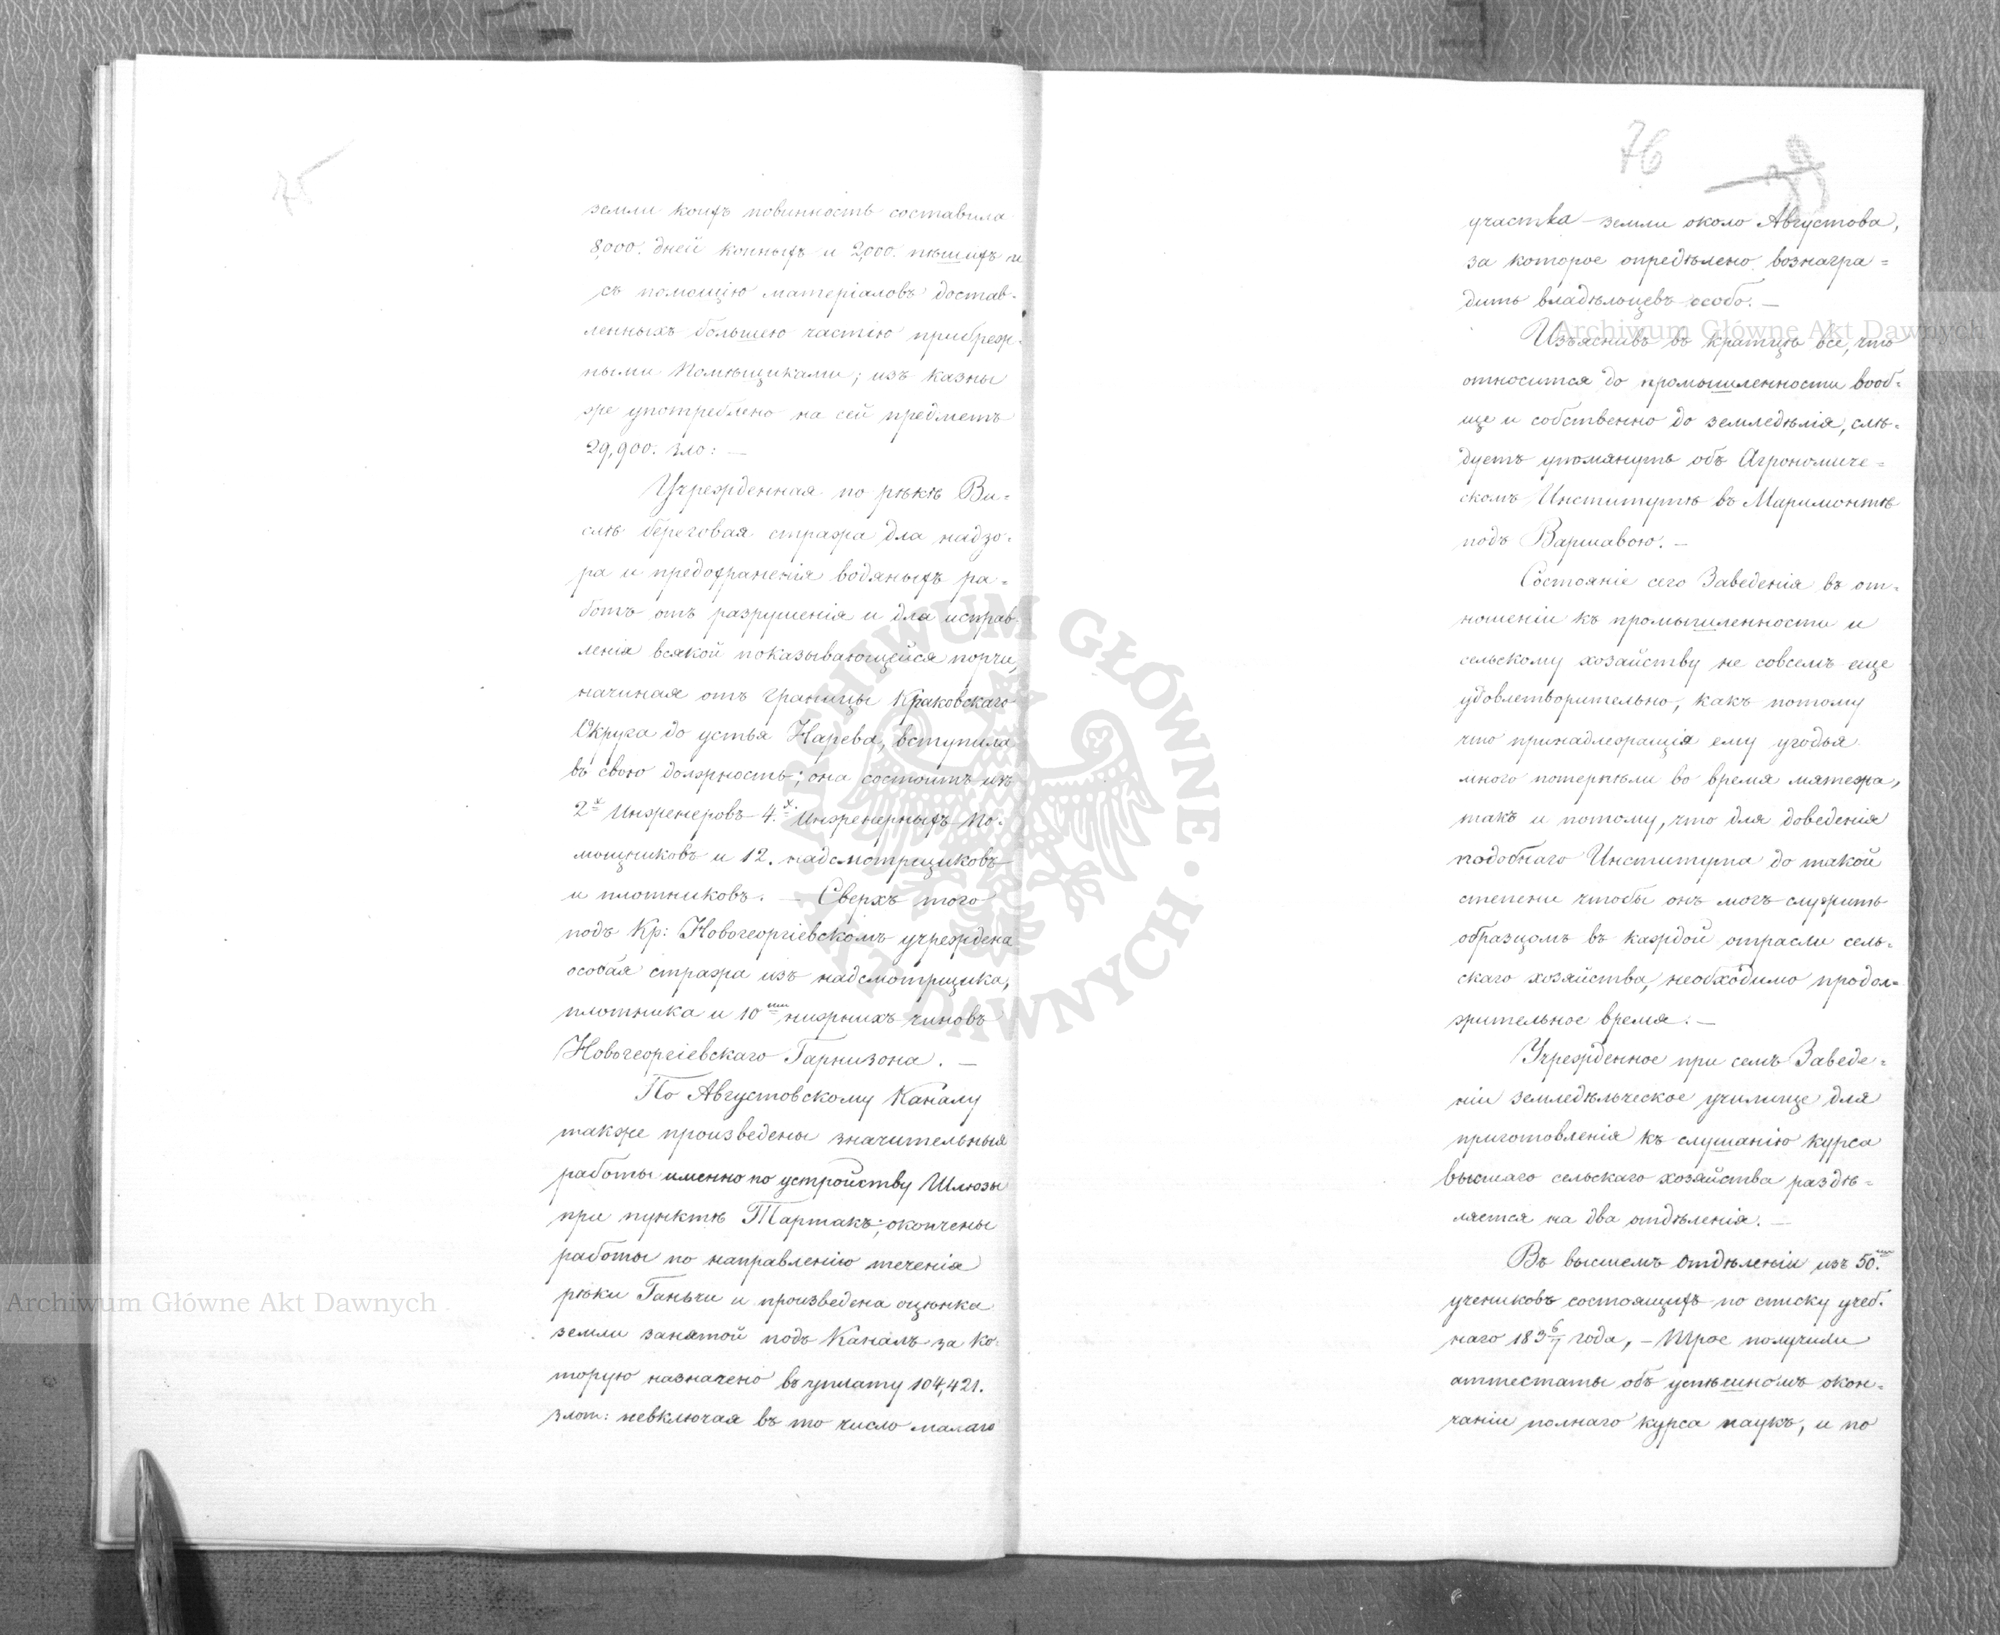 75
земли коихъ повинность составила
8,000. дней конныхъ и 2,000. пѣшихъ и
съ помощію матеріаловъ достав-
ленныхъ большею частію прибреж-
ными Помѣщиками; изъ казны
же употреблено на сей предметъ
29,900. зло: —
Учрежденная по рѣкѣ Ви-
слѣ береговая стража для надзо-
ра и предохраненія водяныхъ ра-
ботъ отъ разрушенія и для исправ-
ленія всякой показывающейся порчи,
начиная отъ границы Краковскаго
Округа до устья Нарева, вступила
въ свою должность; она состоитъ изъ
2х Инженеровъ 4.х Инженерныхъ По-
мощниковъ и 12. надсмотрщиковъ
и плотниковъ. — Сверхъ того
подъ Кр: Новогеоргіевскомъ учреждена
особая стража изъ надсмотрщика,
плотника и 10ти нижнихъ чиновъ
Новогеоргіевскаго Гарнизона. —
По Августовскому Каналу
также произведены значительныя
работы именно по устройству Шлюзы
при пунктѣ Тартакъ; окончены
работы по направленію теченія
рѣки Ганьчи и произведена оцѣнка
земли занятой подъ Каналъ за ко-
торую назначено въ уплату 104,421.
злот: невключая въ то число малаго
76
участка земли около Августова,
за которое опредѣлено вознагра-
дить владѣльцевъ особо. —
Изъяснивъ въ кратцѣ все, что
относится до промышленности вооб-
ще и собственно до земледѣлія, слѣ-
дуетъ упомянуть объ Агрономиче-
скомъ Институтѣ въ Маримонтѣ
подъ Варшавою. —
Состояніе сего Заведенія въ от-
ношеніи къ промышленности и
сельскому хозяйству не совсемъ еще
удовлетворительно, какъ потому
что принадлежащія ему угодья
много потерпѣли во время мятежа,
такъ и потому, что для доведенія
подобнаго Института до такой
степени чтобы онъ могъ служить
образцомъ въ каждой отрасли сель-
скаго хозяйства, необходимо продол-
жительное время. —
Учрежденное при семъ Заведе-
ніи земледѣльческое училище для
приготовленія къ слушанію курса
высшаго сельскаго хозяйства раздѣ-
ляется на два отдѣленія. —
Въ высшемъ отдѣленіи изъ 50.ти
учениковъ состоящихъ по списку учеб-
наго 183 6/7 года, — Трое получили
аттестаты объ успѣшномъ окон-
чаніи полнаго курса наукъ, и по
Archiwum Główne Akt Dawnych
Archiwum Główne Akt Dawnych
ARCHIWUM GŁÓWNE AKT DAWNYCH